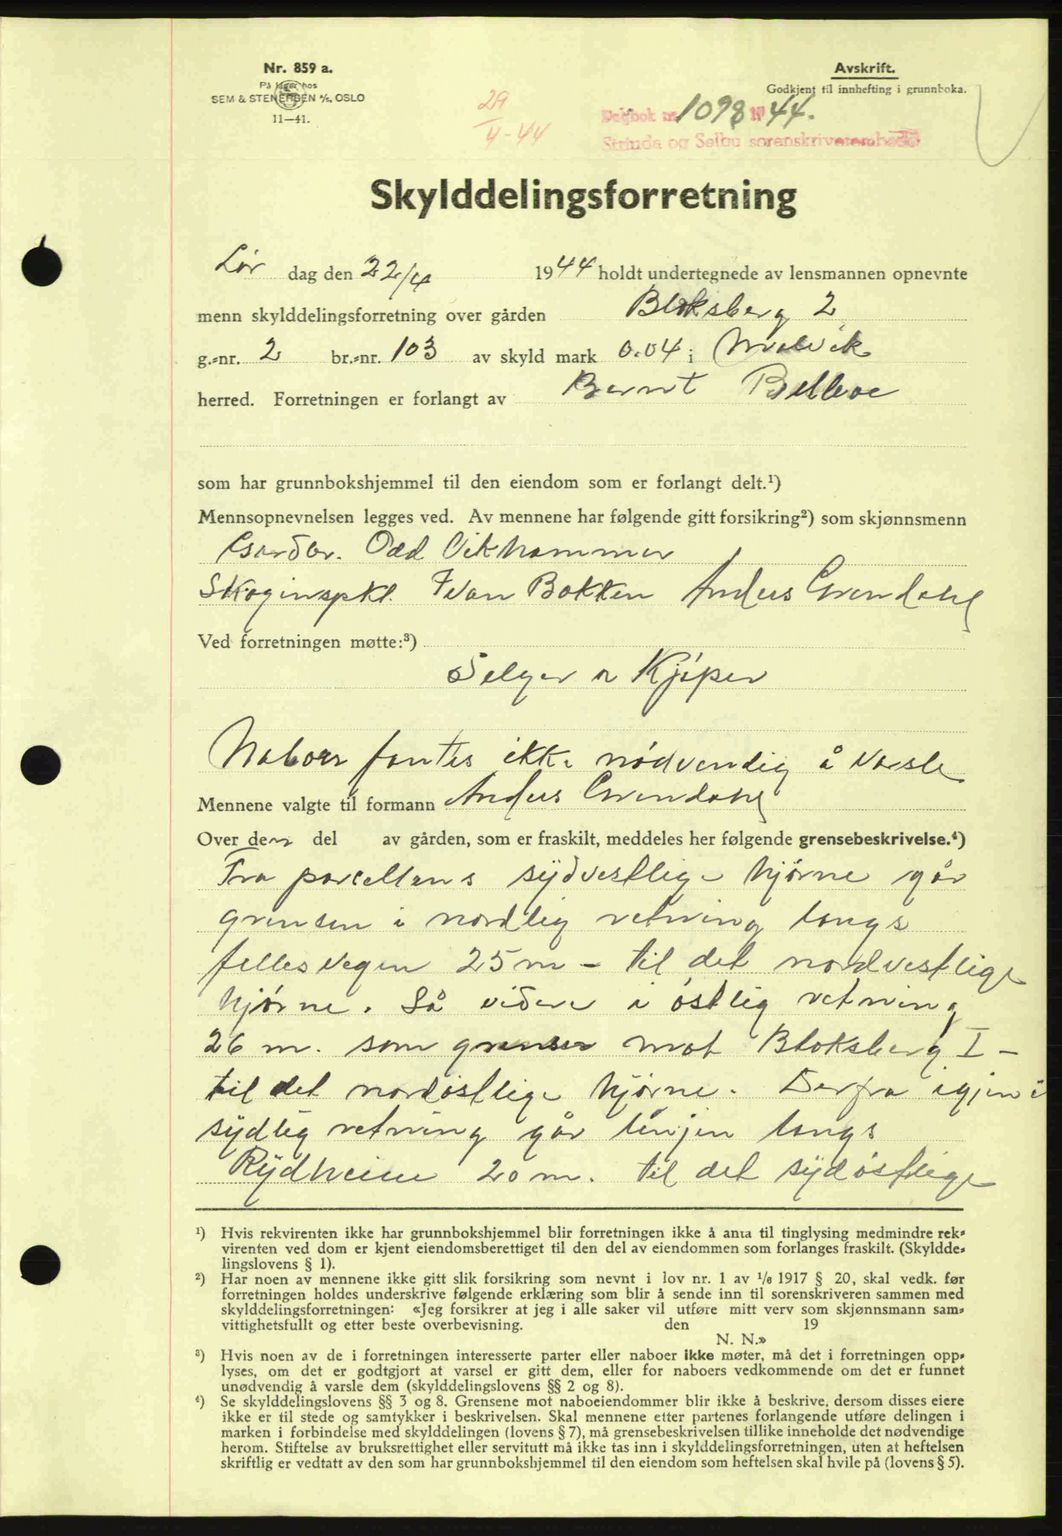 Nr. 859 a.
På lager hos
SEM & STENERSEN A/S, OSLO
11—41.
Avskrift.
Godkjent til innhefting i grunnboka.
29/4-44
Dagbok nr. 1098 19 44.
Strinda og Selbu sorenskriverembede
Skylddelingsforretning
Lør dag den 22/4 1944 holdt undertegnede av lensmannen opnevnte
menn skylddelingsforretning over gården Bloksberg 2
g.-nr. 2 br.-nr. 103 av skyld mark 0.04 i Malvik
herred. Forretningen er forlangt av Bernt
som har grunnbokshjemmel til den eiendom som er forlangt delt.¹)
Mennsopnevnelsen legges ved. Av mennene har følgende gitt forsikring²) som skjønnsmenn
Gårdbr. Odd Vikhammer
Skoginspkt. Ivan Bakken Anders Grendahl
Ved forretningen møtte:³)
Selger o Kjøper
Naboer fantes ikke nødvendig å varsle
Mennene valgte til formann Anders Grendahl
Over den del av gården, som er fraskilt, meddeles her følgende grensebeskrivelse.⁴)
Fra parcellens sydvestlige hjørne går
grensen i nordlig retning langs
fellesvegen 25 m - til det nordvestlige
hjørne. Så videre i østlig retning
26 m. som grense mot Bloksberg I -
til det nordøstlige hjørne. Derfra igjen i
sydlig retning går linjen langs
Rydheim 20 m. til det sydøstlige
¹) Hvis rekvirenten ikke har grunnbokshjemmel blir forretningen ikke å anta til tinglysing medmindre rek-
virenten ved dom er kjent eiendomsberettiget til den del av eiendommen som forlanges fraskilt. (Skyldde-
lingslovens § 1).
²) Har noen av mennene ikke gitt slik forsikring som nevnt i lov nr. 1 av 1/6 1917 § 20, skal vedk. før
forretningen holdes underskrive følgende erklæring som blir å sende inn til sorenskriveren sammen med
skylddelingsforretningen: «Jeg forsikrer at jeg i alle saker vil utføre mitt verv som skjønnsmann sam-
vittighetsfullt og etter beste overbevisning. den 19
N. N.»
³) Hvis noen av de i forretningen interesserte parter eller naboer ikke møter, må det i forretningen opp-
lyses, om det er godtgjort at varsel er gitt dem, eller for naboers vedkommende om det er funnet
unødvendig å varsle dem (skylddelingslovens §§ 2 og 8).
⁴) Se skylddelingslovens §§ 3 og 8. Grensene mot naboeiendommer blir ikke å beskrive, dersom disses eiere
ikke er til stede og samtykker i beskrivelsen. Skal mennene etter partenes forlangende utføre delingen i
marken i forbindelse med skylddelingen (lovens § 7), må grensebeskrivelsen tillike inneholde det nødvendige
herom. Stiftelse av bruksrettighet eller servitutt må ikke tas inn i skylddelingsforretningen, uten at heftelsen
skriftlig er vedtatt av den som har grunnbokshjemmel til den eiendom som heftelsen skal hvile på (lovens § 5).